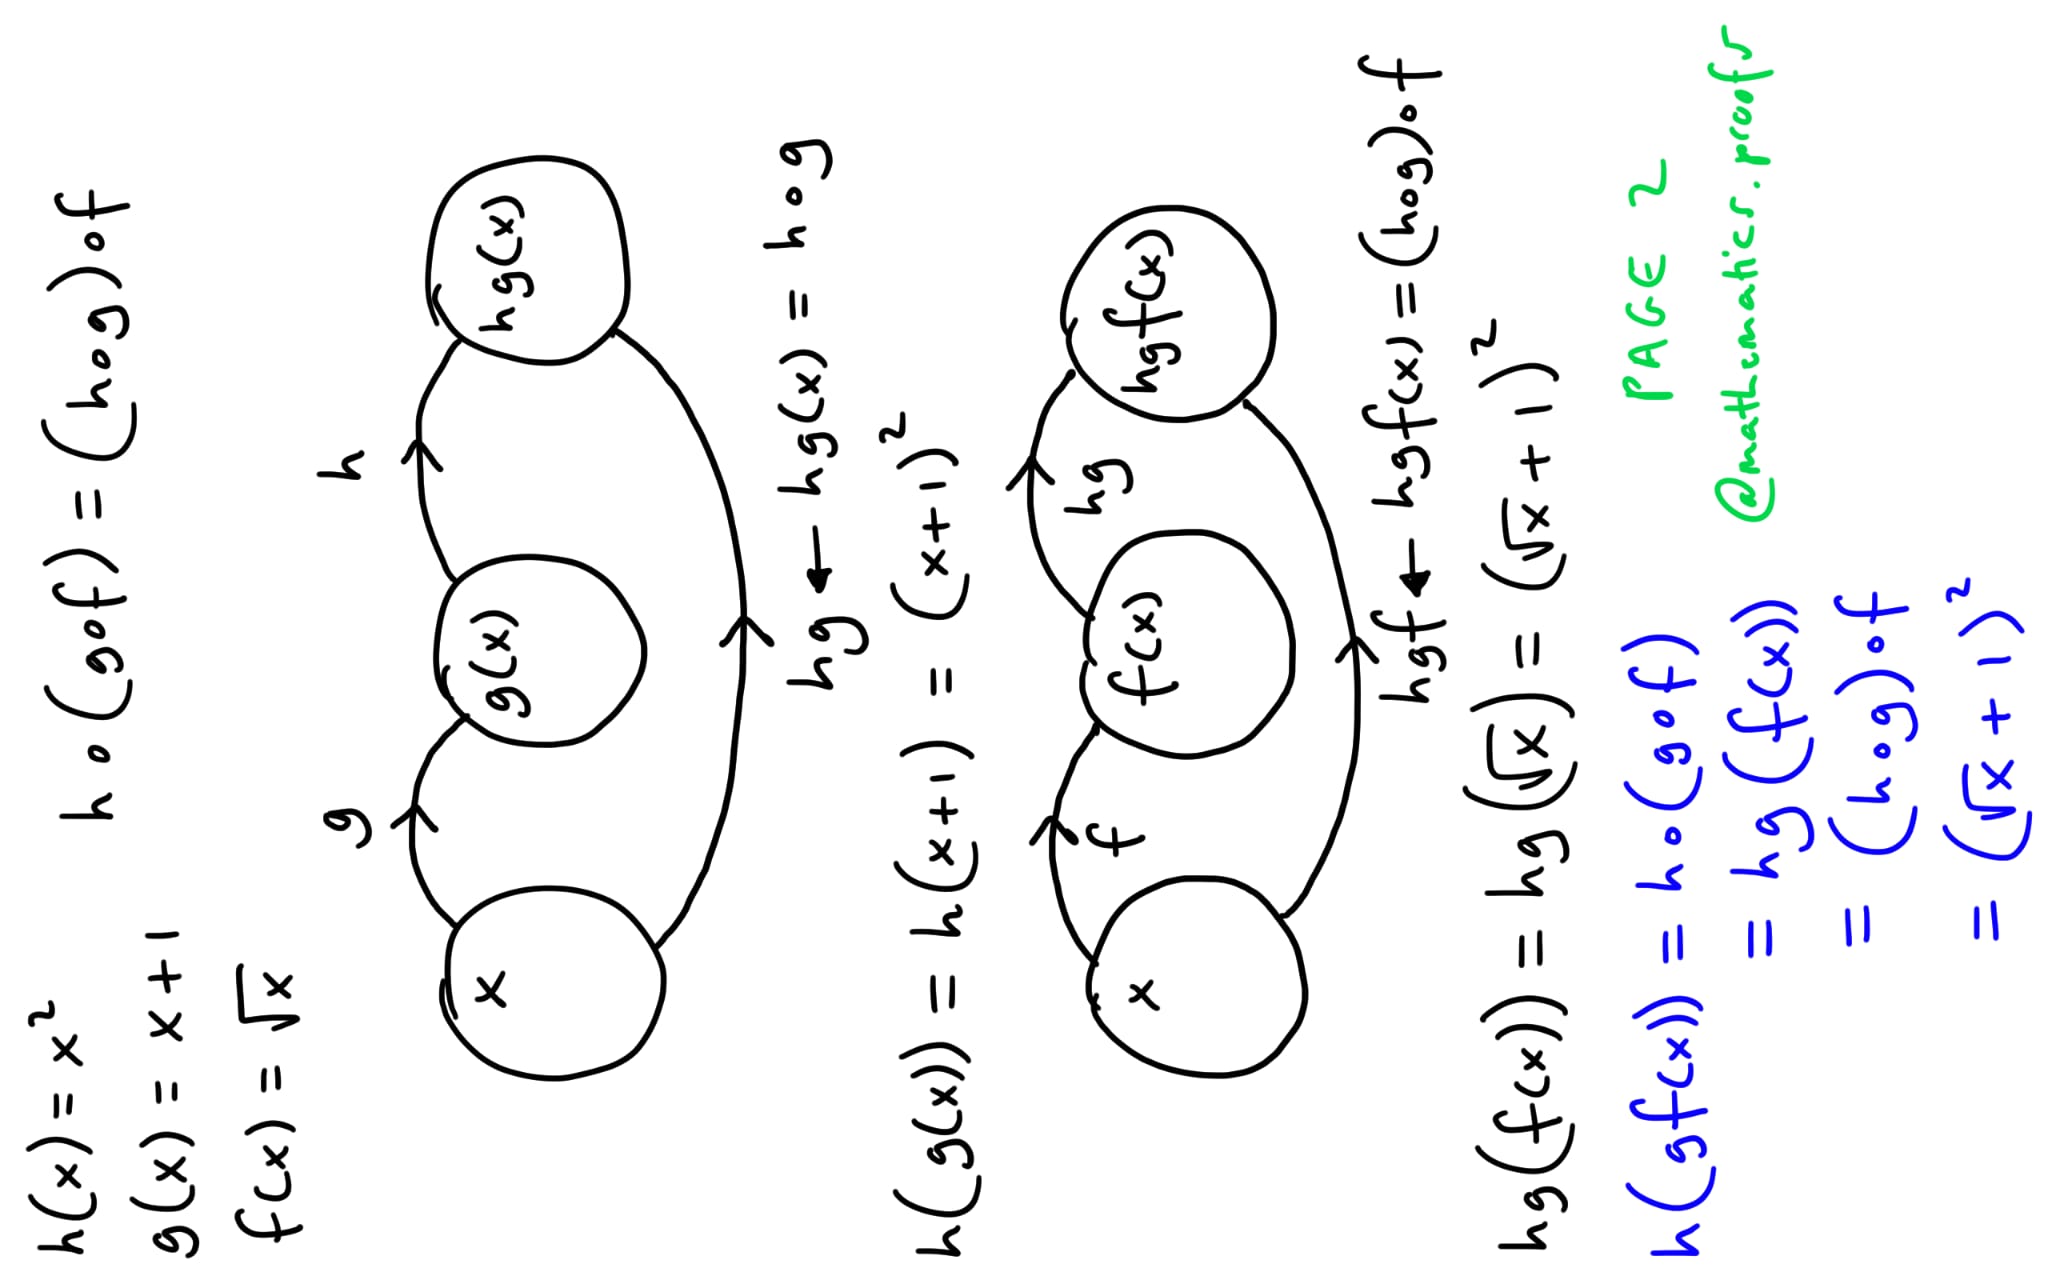 h(x) = x²
h∘(g∘f) = (h∘g)∘f
g(x) = x+1
f(x) = √x
g
h
x
g(x)
hg(x)
hg ← hg(x) = h∘g
h(g(x)) = h(x+1) = (x+1)²
f
hg
x
f(x)
hgf(x)
hgf ← hgf(x) = (h∘g)∘f
hg(f(x)) = hg(√x) = (√x + 1)²
h(gf(x)) = h∘(g∘f)
= hg(f(x))
= (h∘g)∘f
= (√x + 1)²
PAGE 2
@mathematics.proofs